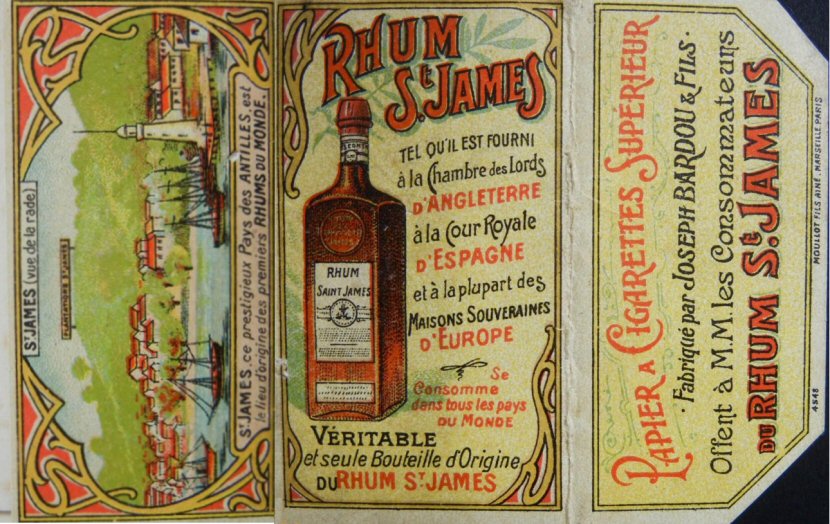 ST JAMES (vue de la rade)
PLANTATIONS ST JAMES
ST JAMES ce prestigieux Pays des ANTILLES, est
le lieu d'origine des premiers RHUMS DU MONDE.
RHUM
ST JAMES
TEL QU'IL EST FOURNI
à la Chambre des Lords
D'ANGLETERRE
à la Cour Royale
D'ESPAGNE
et à la plupart des
MAISONS SOUVERAINES
D'EUROPE
Se
Consomme
dans tous les pays
DU MONDE
RHUM
SAINT JAMES
VÉRITABLE
et seule Bouteille d'Origine
DU RHUM ST JAMES
PAPIER A CIGARETTES SUPÉRIEUR
Fabriqué par JOSEPH BARDOU & FILS
Offent à M.M. les Consommateurs
DU RHUM ST JAMES
MOULLOT FILS AINÉ. MARSEILLE. PARIS
4548